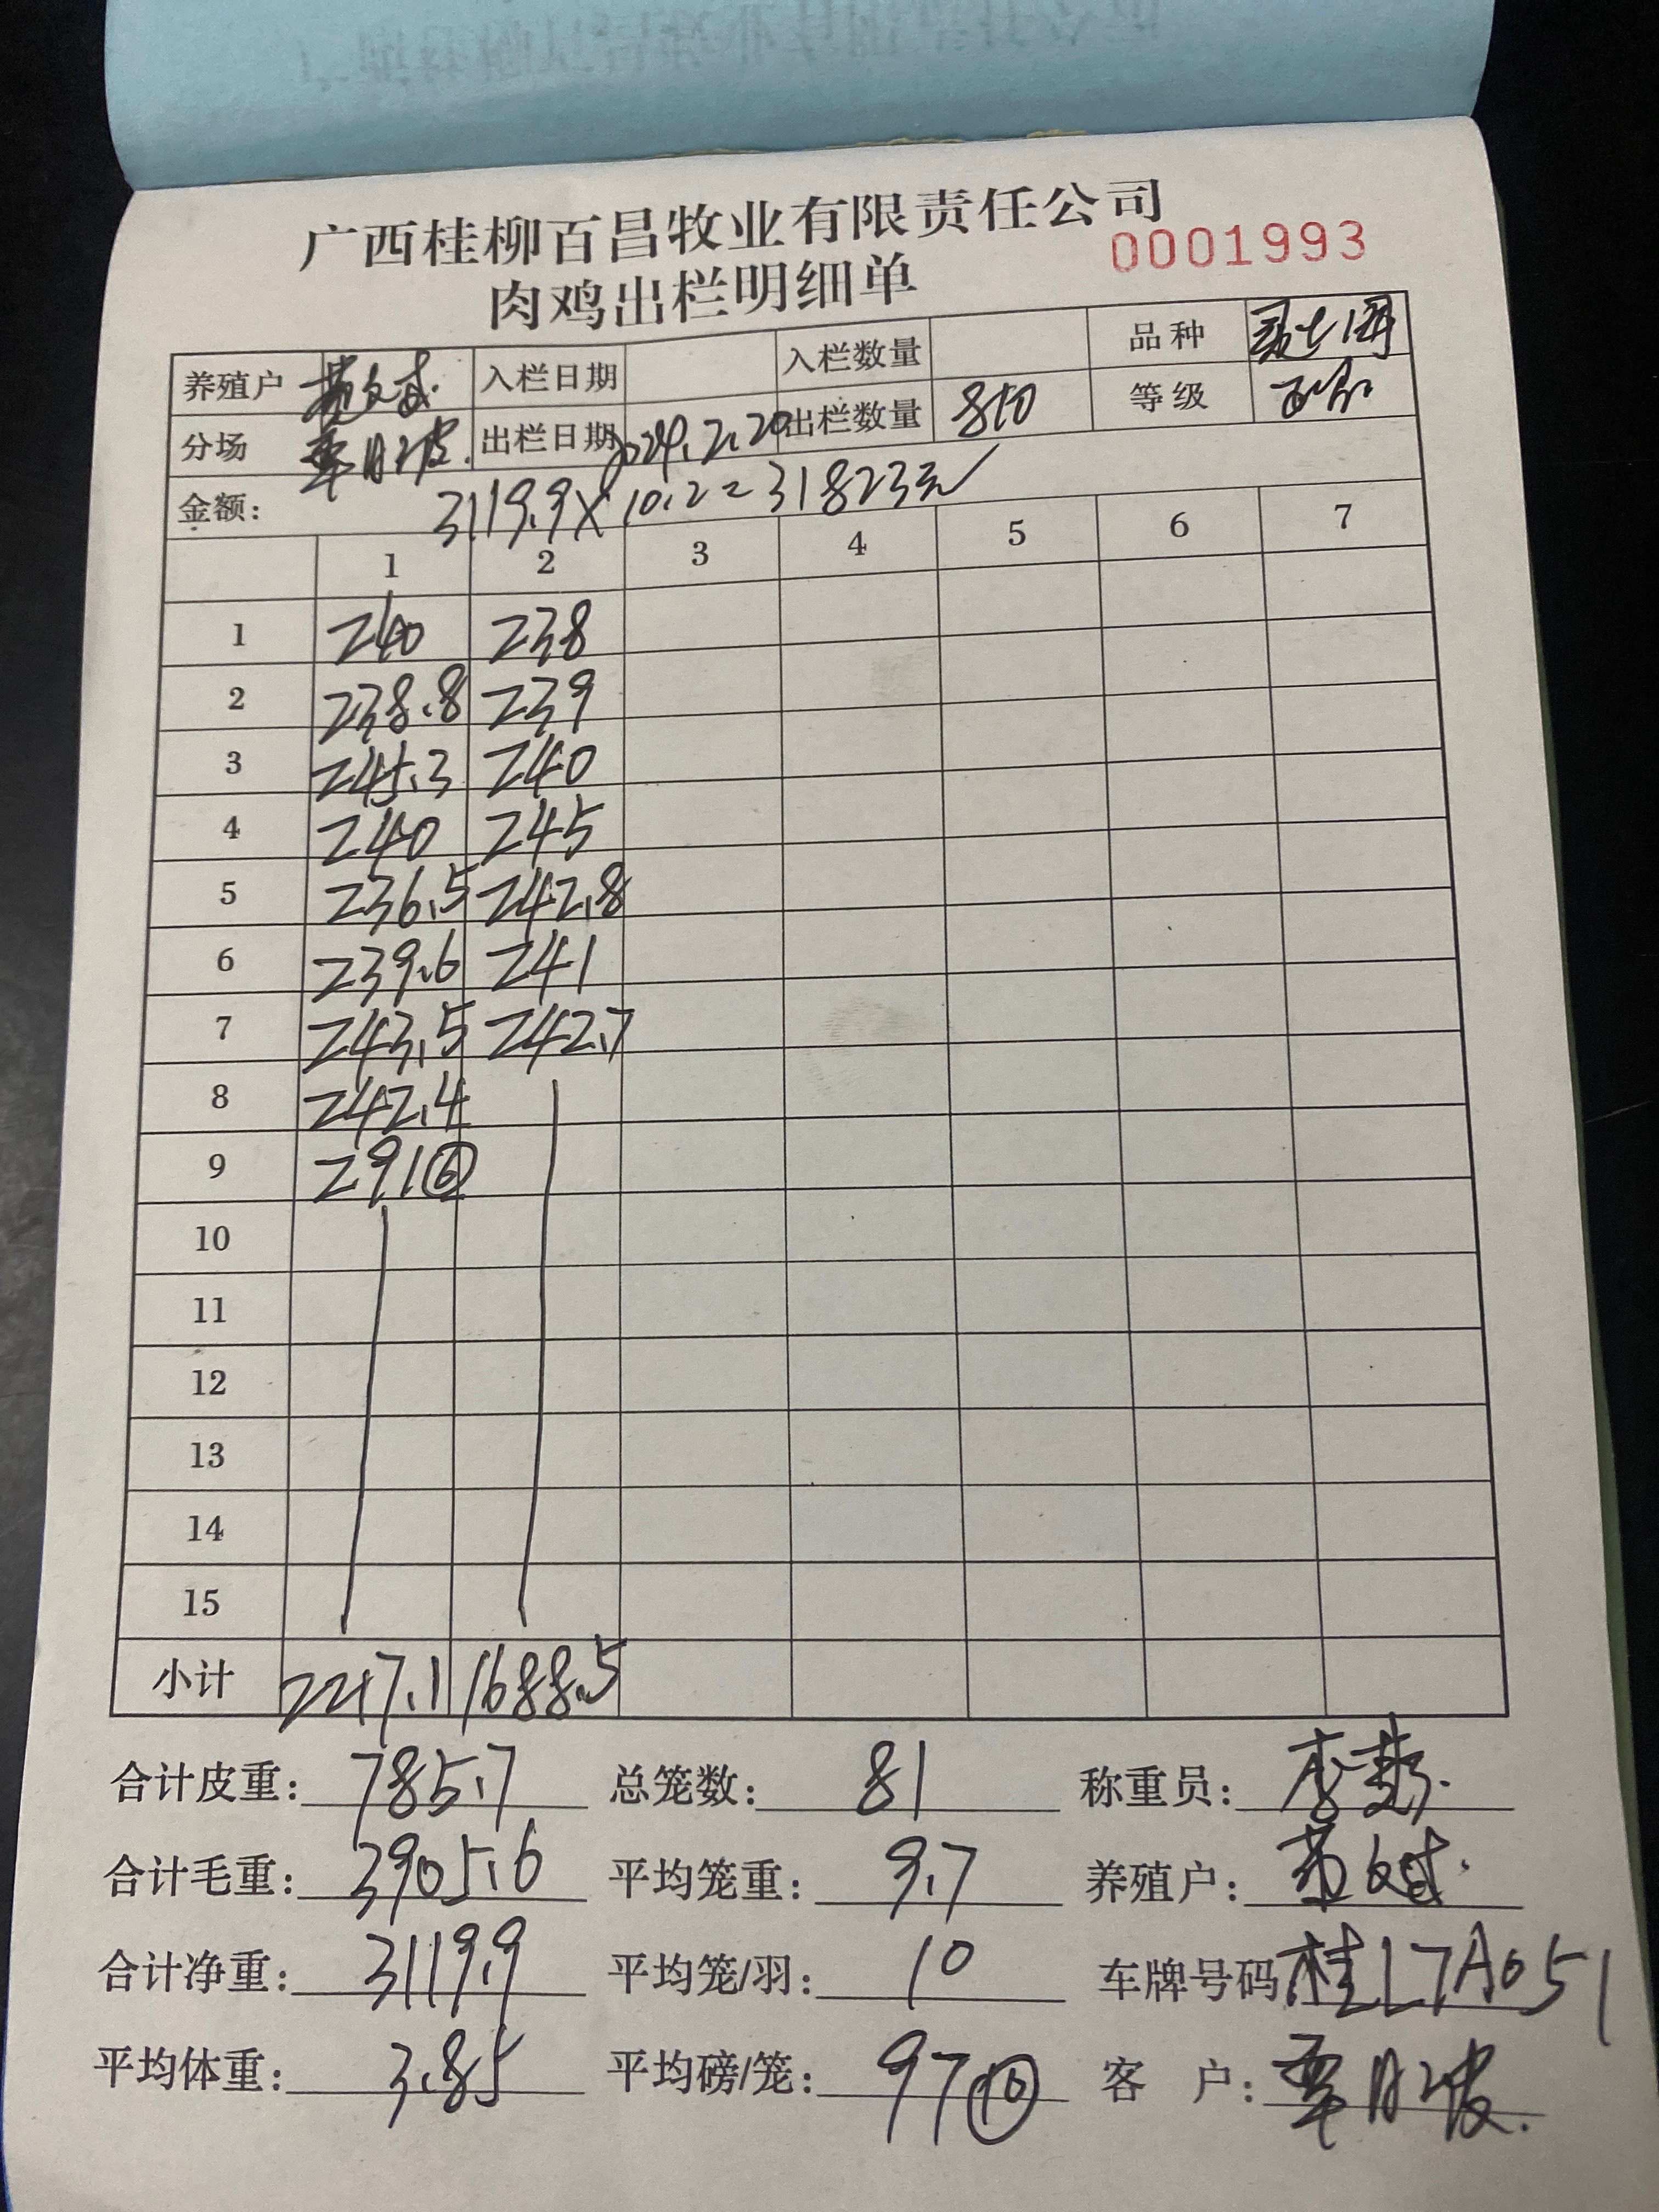 广西桂柳百昌牧业有限责任公司
0001993
肉鸡出栏明细单
养殖户 入栏日期 入栏数量 品种
分场 覃月波 出栏日期 2024.2.20 出栏数量 810 等级
金额: 3119.9×10.2=31823元
1 2 3 4 5 6 7
1 240 238
2 238.8 239
3 245.3 240
4 240 245
5 236.5 242.8
6 239.6 241
7 243.5 242.7
8 242.4
9 291⑥
10
11
12
13
14
15
小计 2217.1 1688.5
合计皮重: 785.7 总笼数: 81 称重员: 李
合计毛重: 3905.6 平均笼重: 9.7 养殖户:
合计净重: 3119.9 平均笼/羽: 10 车牌号码 桂L7A051
平均体重: 3.85 平均磅/笼: 97⑩ 客 户: 覃月波